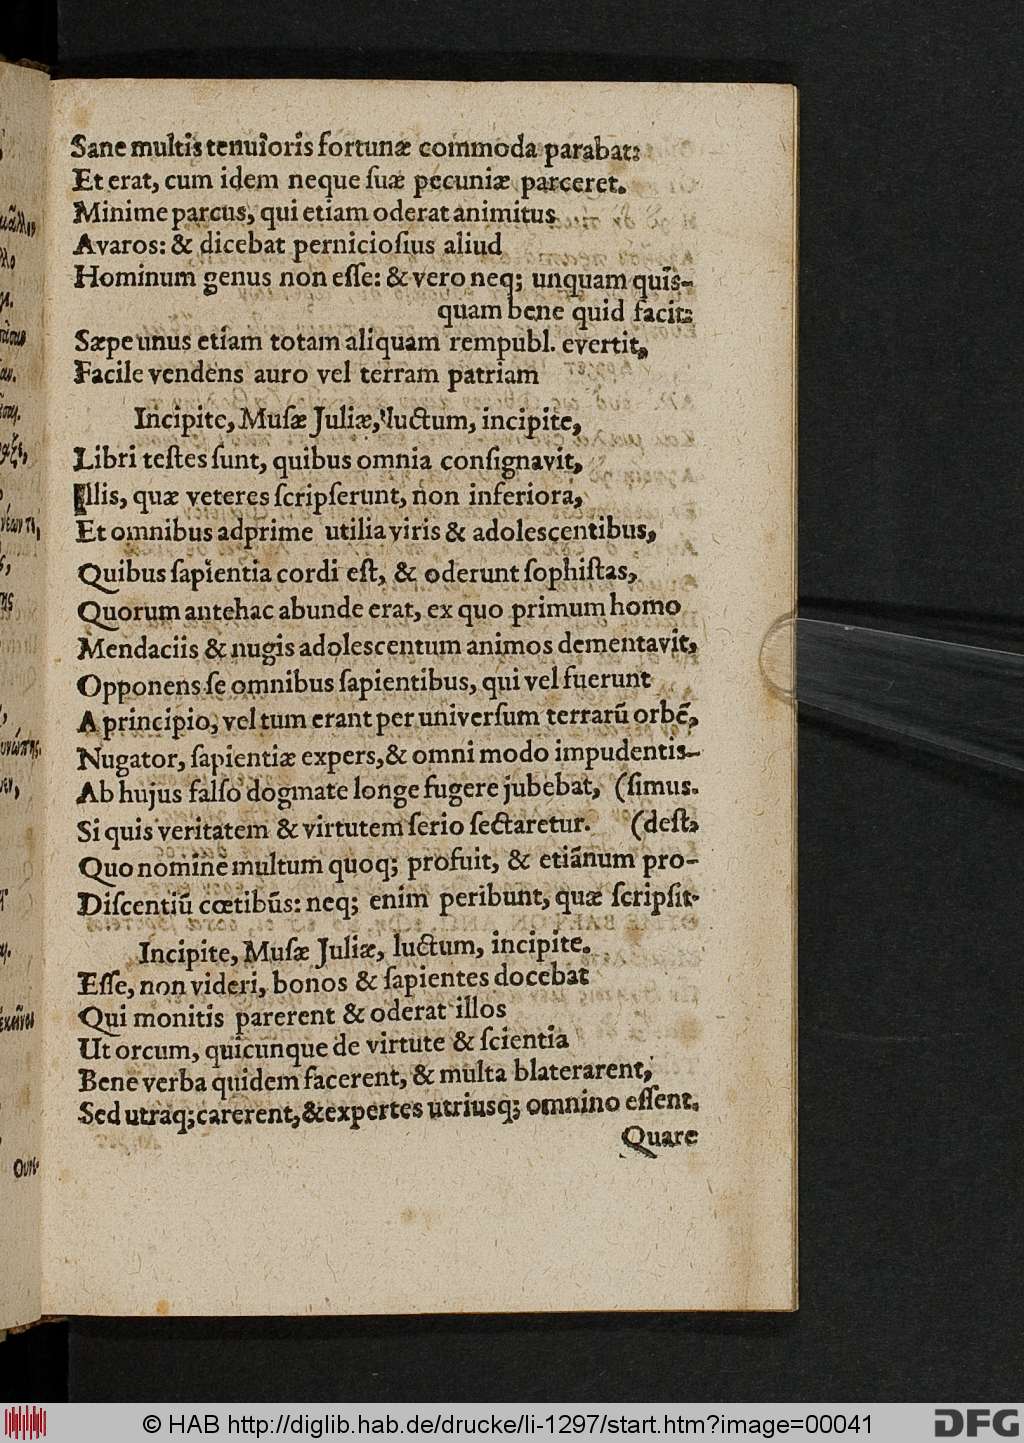 Sane multis tenuioris fortunæ commoda parabat:
Et erat, cum idem neque ſuæ pecuniæ parceret.
Minime parcus, qui etiam oderat animitus
Avaros: & dicebat pernicioſius aliud
Hominum genus non eſſe: & vero neq; unquam quis-
quam bene quid facit:
Sæpe unus etiam totam aliquam rempubl. evertit,
Facile vendens auro vel terram patriam
Incipite, Muſæ Juliæ, luctum, incipite,
Libri teſtes ſunt, quibus omnia conſignavit,
Illis, quæ veteres ſcripſerunt, non inferiora,
Et omnibus adprime utilia viris & adolescentibus,
Quibus ſapientia cordi eſt, & oderunt ſophiſtas,
Quorum antehac abunde erat, ex quo primum homo
Mendaciis & nugis adolescentum animos dementavit,
Opponens ſe omnibus ſapientibus, qui vel fuerunt
A principio, vel tum erant per univerſum terrarũ orbẽ,
Nugator, ſapientiæ expers, & omni modo impudentis-
Ab hujus falſo dogmate longe fugere jubebat, (ſimus.
Si quis veritatem & virtutem ſerio ſectaretur. (deſt,
Quo nomine multum quoq; profuit, & etiãnum pro-
Diſcentiũ cœtibus: neq; enim peribunt, quæ ſcripſit.
Incipite, Muſæ Juliæ, luctum, incipite.
Eſſe, non videri, bonos & ſapientes docebat
Qui monitis parerent & oderat illos
Ut orcum, quicunque de virtute & ſcientia
Bene verba quidem facerent, & multa blaterarent,
Sed utraq; carerent, & expertes utriusq; omnino eſſent.
Quare
© HAB http://diglib.hab.de/drucke/li-1297/start.htm?image=00041
DFG